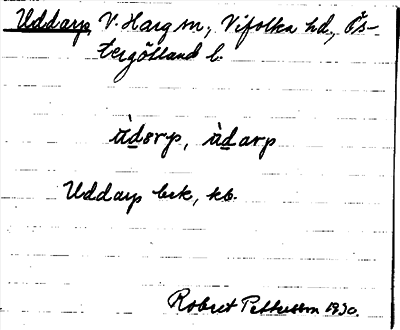 Uddarp, V. Harg sn, Vifolka hd., Ös-
tergötland l.
ùdərp, ùdarp
Uddarp bek, kb.
Robert Pettersson 1930.